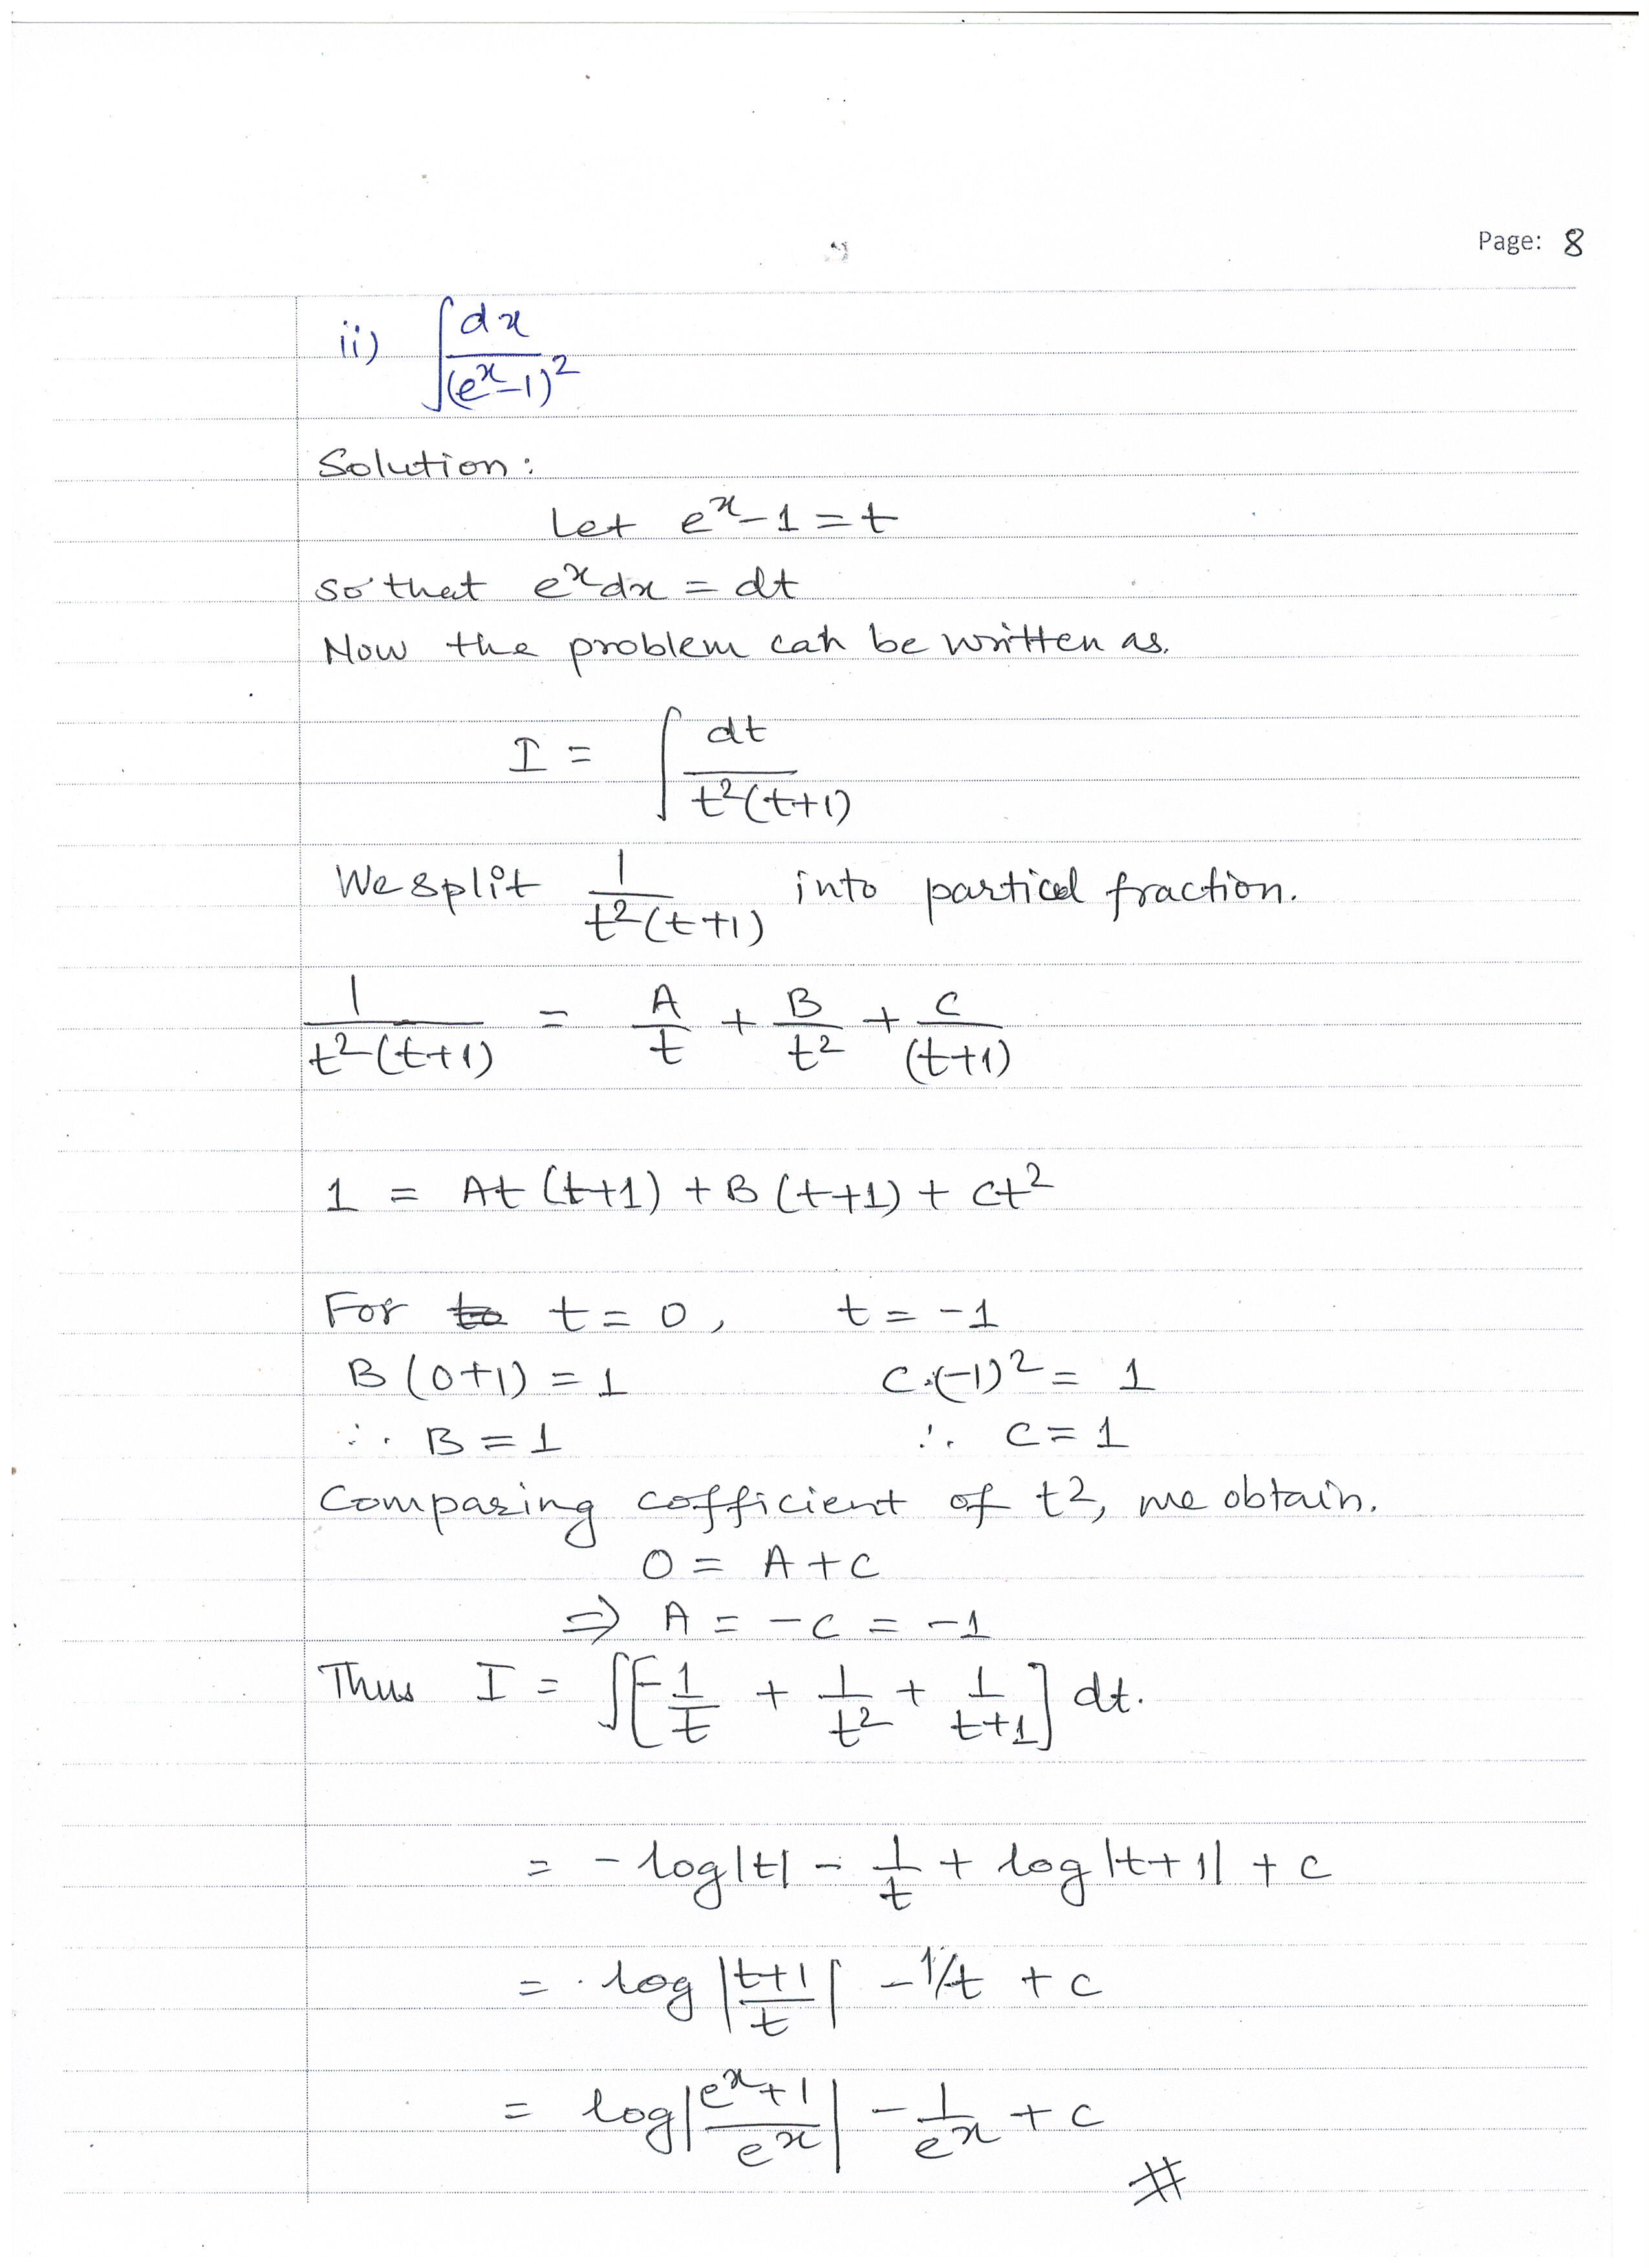 Page: 8
ii) ∫ dx / (e^x-1)^2
Solution:
Let e^x-1 = t
so that e^x dx = dt
Now the problem can be written as.
I = ∫ dt / t^2(t+1)
We split 1 / t^2(t+1) into partical fraction.
1 / t^2(t+1) = A/t + B/t^2 + C/(t+1)
1 = At(t+1) + B(t+1) + Ct^2
For t = 0, t = -1
B(0+1) = 1 C.(-1)^2 = 1
∴ B = 1 ∴ C = 1
Comparing cofficient of t^2, we obtain.
0 = A + C
⇒ A = -C = -1
Thus I = ∫[-1/t + 1/t^2 + 1/(t+1)] dt.
= -log|t| - 1/t + log|t+1| + c
= log|(t+1)/t| - 1/t + c
= log|(e^x+1)/e^x| - 1/e^x + c
#